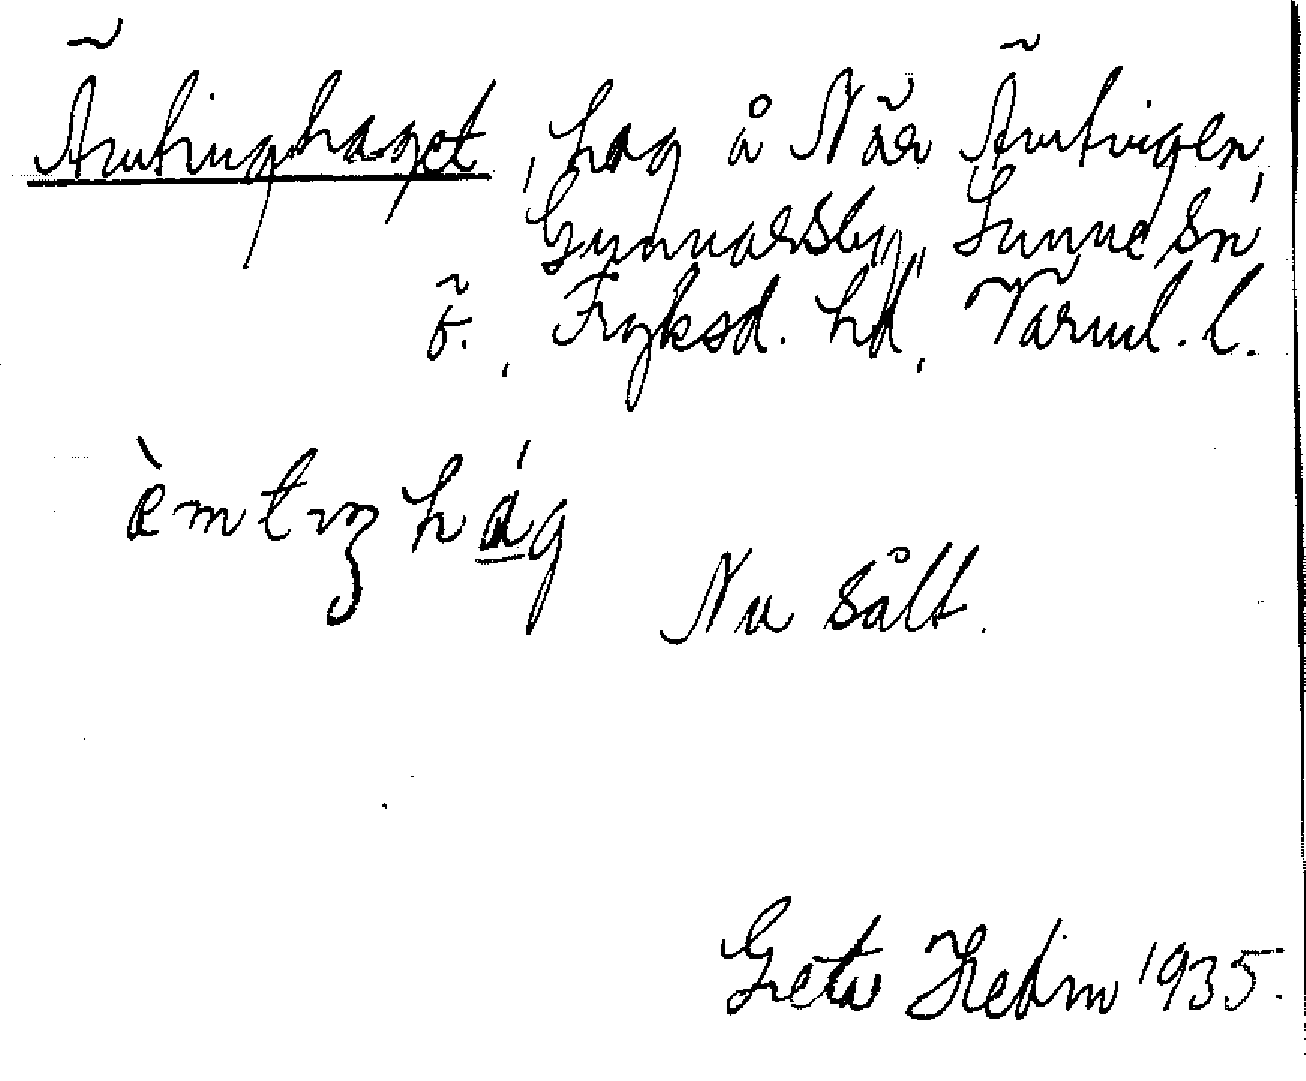 Ämtinghaget, hag å När Ämtvigen,
Gunnarsby, Sunne sn
ö., Fryksd. hd, Värml. l.
èmtiŋhág
Nu sålt.
Greta Hedin 1935.